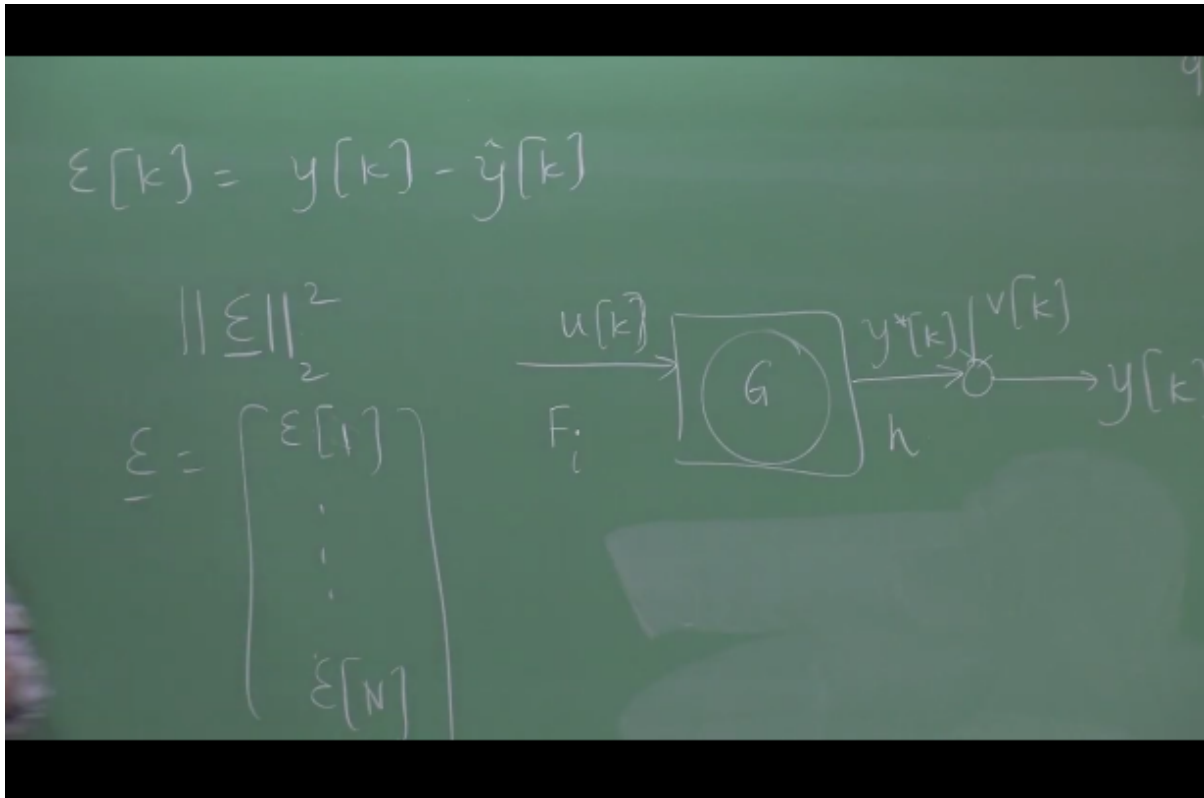 ε[k] = y[k] - ŷ[k]
||ε||₂²
ε = [ ε[1]
⋮
ε[N] ]
u[k]
F_i
G
y*[k]
h
v[k]
y[k]